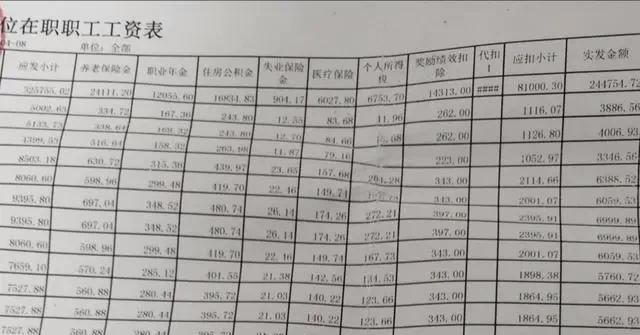 位在职职工工资表
04-08 单位: 全部
应发小计 养老保险金 职业年金 住房公积金 失业保险金 医疗保险 个人所得税 奖励绩效扣除 代扣1 应扣小计 实发金额
325755.02 24111.20 12055.60 16834.83 904.17 6027.80 6753.70 14313.00 #### 81000.30 244754.72
5002.63 334.72 167.36 243.80 12.55 83.68 11.96 262.00 1116.07 3886.56
5133.73 338.64 169.32 243.80 12.70 84.66 15.68 262.00 1126.80 4006.93
4399.53 316.64 158.32 263.98 11.87 79.16 223.00 1052.97 3346.56
8503.18 630.72 315.36 439.97 23.65 157.68 204.28 343.00 2114.66 6388.52
8060.60 598.96 299.48 419.70 22.46 149.74 343.00 2001.07 6059.53
9395.80 697.04 348.52 480.74 26.14 174.26 272.21 397.00 2395.91 6999.89
9395.80 697.04 348.52 480.74 26.14 174.26 272.21 397.00 2395.91 6999.89
8060.60 598.96 299.48 419.70 22.46 149.74 167.73 343.00 2001.07 6059.53
7659.10 570.24 285.12 401.55 21.38 142.56 134.53 343.00 1898.38 5760.72
7527.88 560.88 280.44 395.72 21.03 140.22 123.66 343.00 1864.95 5662.93
7527.88 560.88 280.44 395.72 21.03 140.22 123.66 343.00 1864.95 5662.93